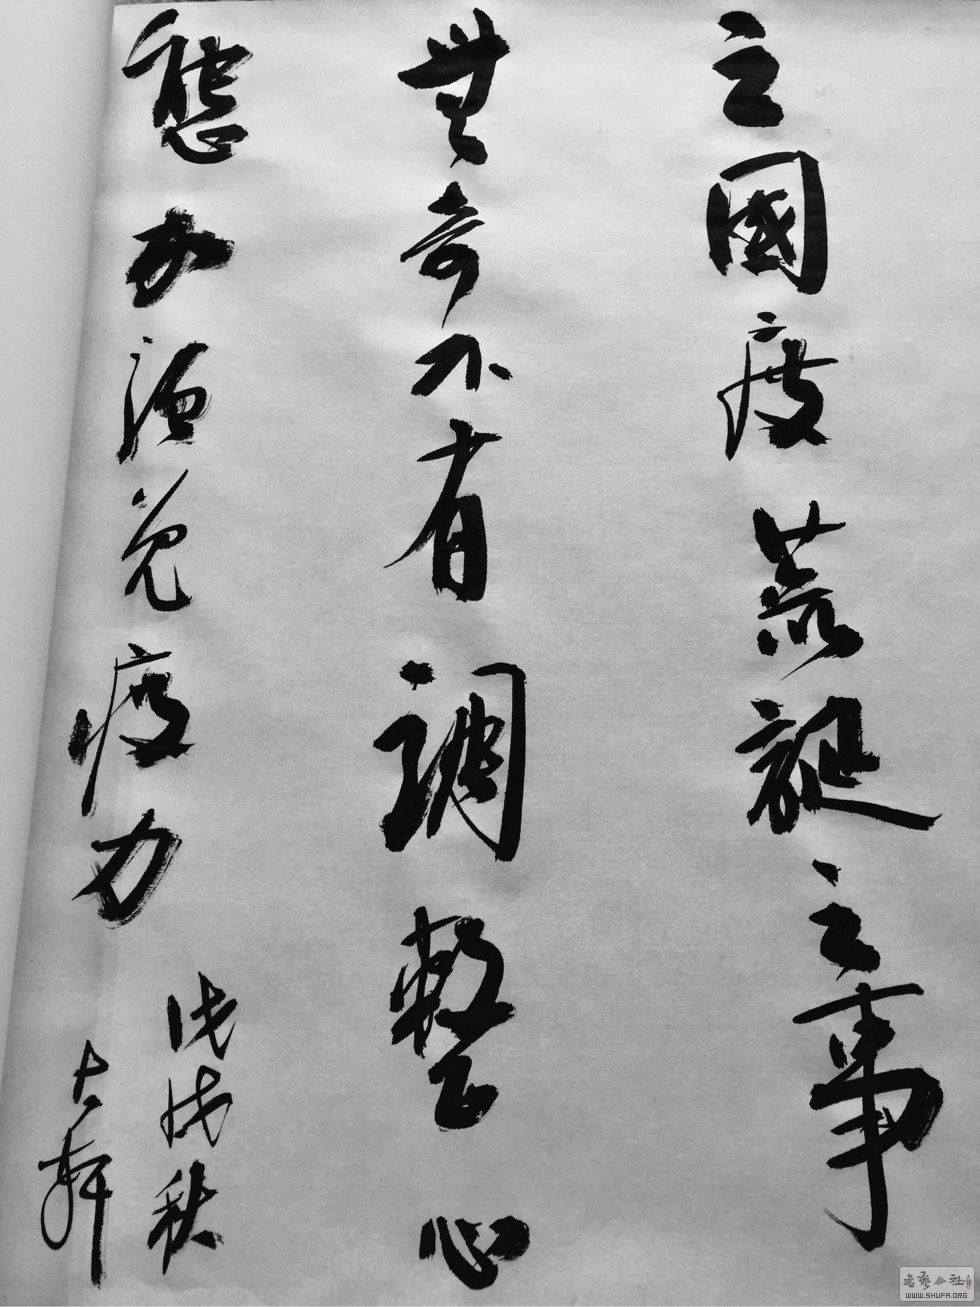 之國度荒誕之事
無奇不有調整心
態加强免疫力
戊戌秋
大軒
書藝公社
WWW.SHUFA.ORG